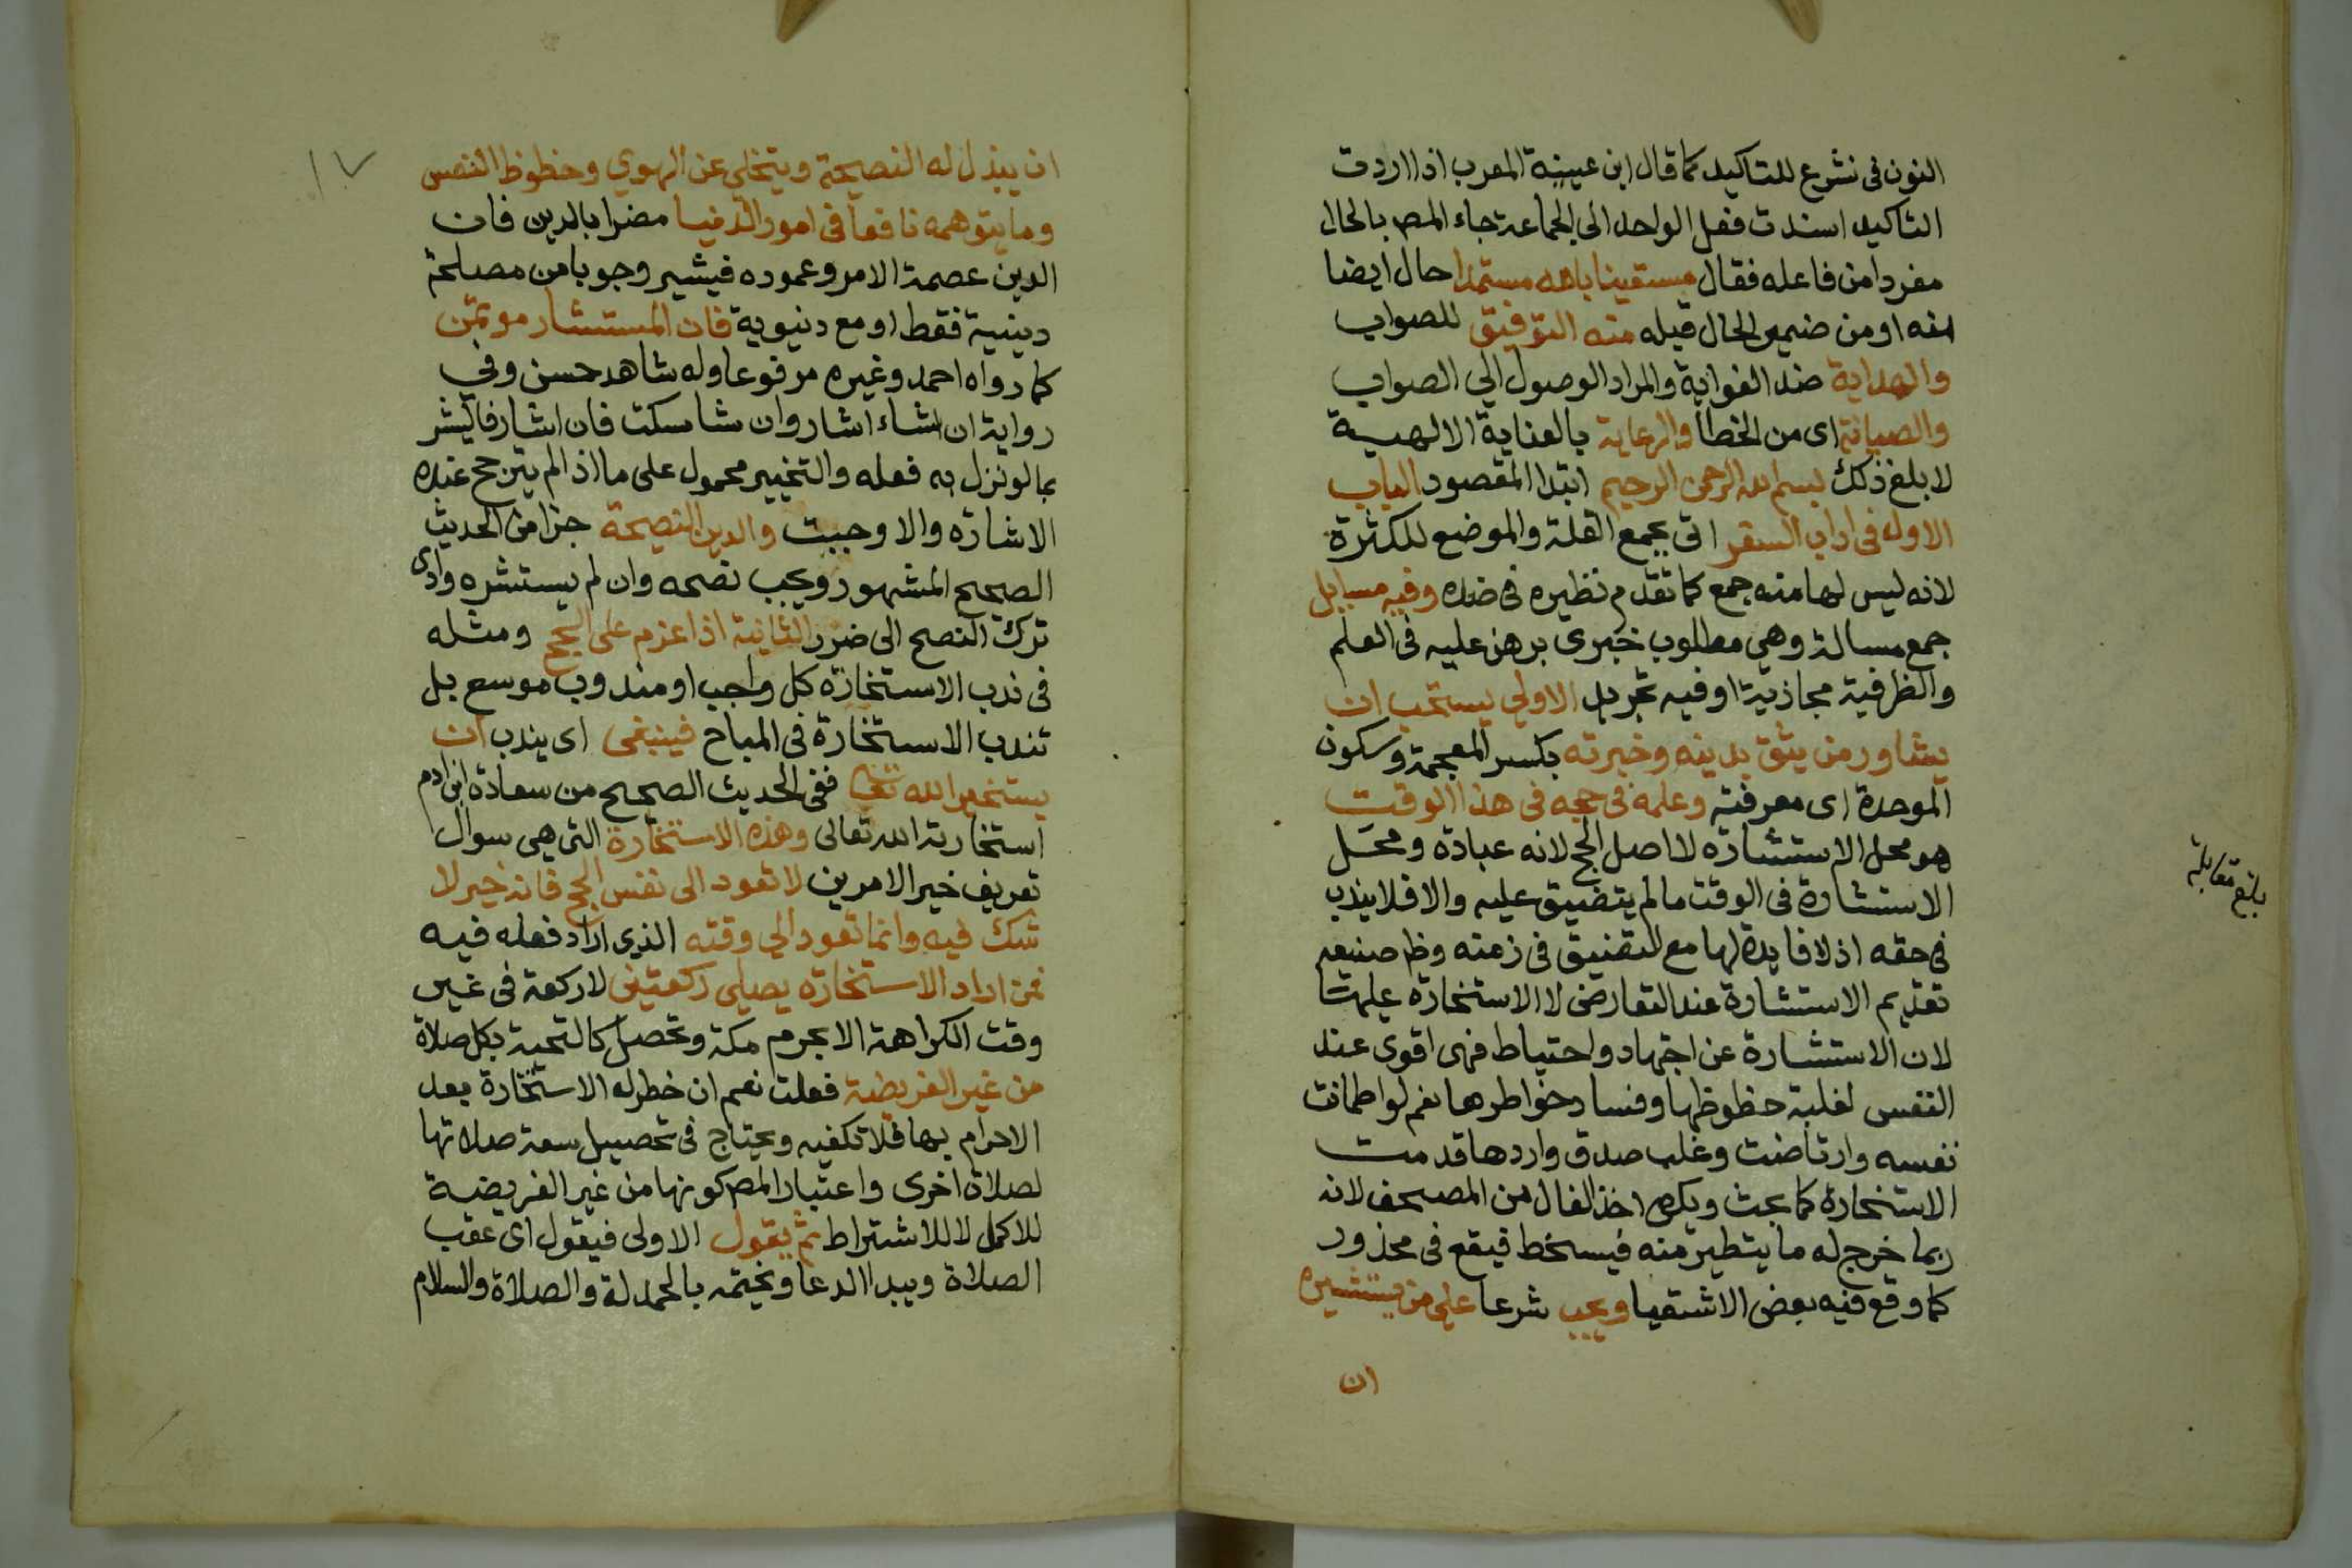 النون فى نشرع للتاكيد كما قال ابن عيينة المعرب اذا اردت
التاكيد اسندت فعل الواحد الى الجماعة جاء المص بالحال
مفردا من فاعله فقال مستعينا بالله مستمدا حال ايضا
منه او من ضمير الحال قبله منه التوفيق للصواب
والهداية ضد الغواية والمراد الوصول الي الصواب
والصيانة اى من الخطأ والرعاية بالعناية الالهية
لابلغ ذلك بسم الله الرحمن الرحيم ابتدا المقصود الباب
الاول فى اداب السفر اتى بجمع القلة والموضع للكثرة
لانه ليس لها منه جمع كما تقدم نظيره فى ضده وفيه مسايل
جمع مسالة وهي مطلوب خبرى برهن عليه فى العلم
والظرفية مجازية او فيه تجريد الاولي يستحب ان
يشاور من يثق بدينه وخبرته بكسر المعجمة وسكون
الموحدة اى معرفته وعلمه في حجه فى هذا الوقت
هو محل الاستشارة لا اصل الحج لانه عبادة ومحل
الاستشارة فى الوقت ما لم يتضيق عليه والا فلا يندب
في حقه اذ لا فايدة لها مع التضيق فى زمنه وظ صنيعه
تقديم الاستشارة عند التعارض لا الاستخارة عليها
لان الاستشارة عن اجتهاد واحتياط فهى اقوى عند
النفس لغلبة حظوظها وفساد خواطرها نعم لو اطمانت
نفسه وارتاضت وغلب صدق واردها قدمت
الاستخارة كما بحث ويكره اخذ الفال من المصحف لانه
ربما خرج له ما يتطير منه فيسخط فيقع فى محذور
كما وقع فيه بعض الاشقيا ويجب شرعا علي من يستشيره
ان
بلغ مقابلة
١٧
ان يبذل له النصيحة ويتخلى عن الهوي وحظوظ النفس
وما يتوهمه نافعا فى امور الدنيا مضرا بالدين فان
الدين عصمة الامر وعموده فيشير وجوبا من مصلحة
دينية فقط او مع دنيوية فان المستشار موتمن
كما رواه احمد وغيره مرفوعا وله شاهد حسن وفي
رواية ان شاء اشار وان شا سكت فان اشار فاليشر
بما لو نزل به فعله والتخيير محمول على ما اذا لم يترجح عنده
الاشارة والا وجبت والدين النصيحة جزا من الحديث
الصحيح المشهور ويجب نصحه وان لم يستشره وادى
ترك النصح الى ضرر الثانية اذا عزم على الحج ومثله
فى ندب الاستخارة كل واجب او مندوب موسع بل
تندب الاستخارة فى المباح فينبغى اى يندب ان
يستخير الله تعالى ففى الحديث الصحيح من سعادة ابن ادم
استخارته الله تعالى وهذه الاستخارة التى هى سوال
تعريف خير الامرين لا تعود الى نفس الحج فانه خير لا
شك فيه وانما تعود الي وقته الذي اراد فعله فيه
فمن اراد الاستخارة يصلي ركعتين لا ركعة فى غير
وقت الكراهة الا بحرم مكة وتحصل كالتحية بكل صلاة
من غير الفريضة فعلت نعم ان خطر له الاستخارة بعد
الاحرام بها فلا تكفيه ويحتاج فى تحصيل سعة صلاتها
لصلاة اخرى واعتبار المص كونها من غير الفريضة
للاكمل لا للاشتراط ثم يقول الاولى فيقول اى عقب
الصلاة ويبدا الدعا ويختمه بالحمدلة والصلاة والسلام